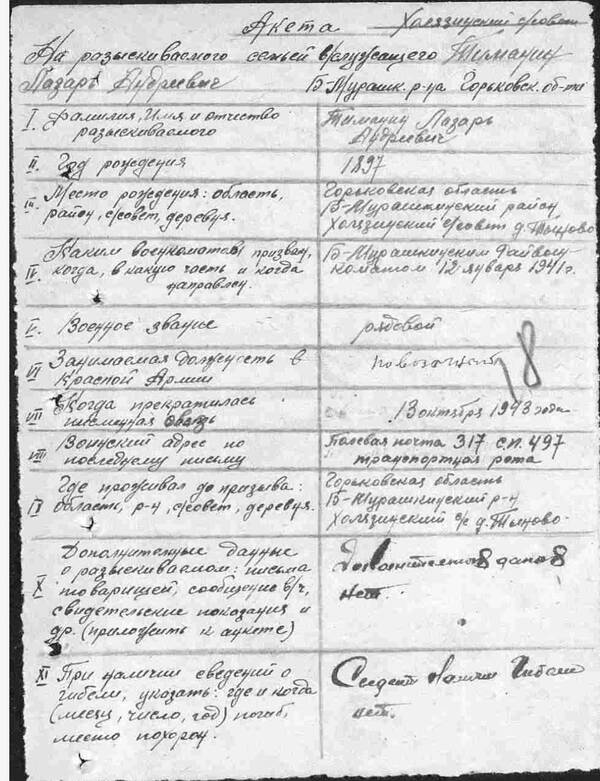 Акета Холязинский с/совет
На разыскиваемого семьей в/служащего Тиманин
Лазарь Андреевич Б-Мурашк. р-на Горьковск. об-ти
I. Фамилия, Имя и отчество Тиманин Лазарь
разыскиваемого Андреевич
II. Год рождения 1897
III. Место рождения: область, Горьковская область
район, с/совет, деревня. Б-Мурашкинский район
Холязинский с/совет д.
IV. Каким военкоматом призван, Б-Мурашкинским Райвоен-
когда, в какую часть и когда коматом 12 января 1941 г.
направлен.
V. Военное звание рядовой
VI Занимаемая должность в повозочный
Красной Армии
18
VII Когда прекратилась 13 октября 1943 года
письменная связь
VIII Воинский адрес по Полевая почта 317 с.п. 497
последнему письму транспортная рота
IX Где проживал до призыва: Горьковская область
область, р-н, с/совет, деревня. Б-Мурашкинский р-н
Холязинский с/с д.
X Дополнительные данные
о разыскиваемом: письма нет.
товарищей, сообщение в/ч,
свидетельские показания и
др. (приложить к анкете)
XI При наличии сведений о
гибели, указать: где и когда нет.
(месяц, число, год) погиб,
место похорон.